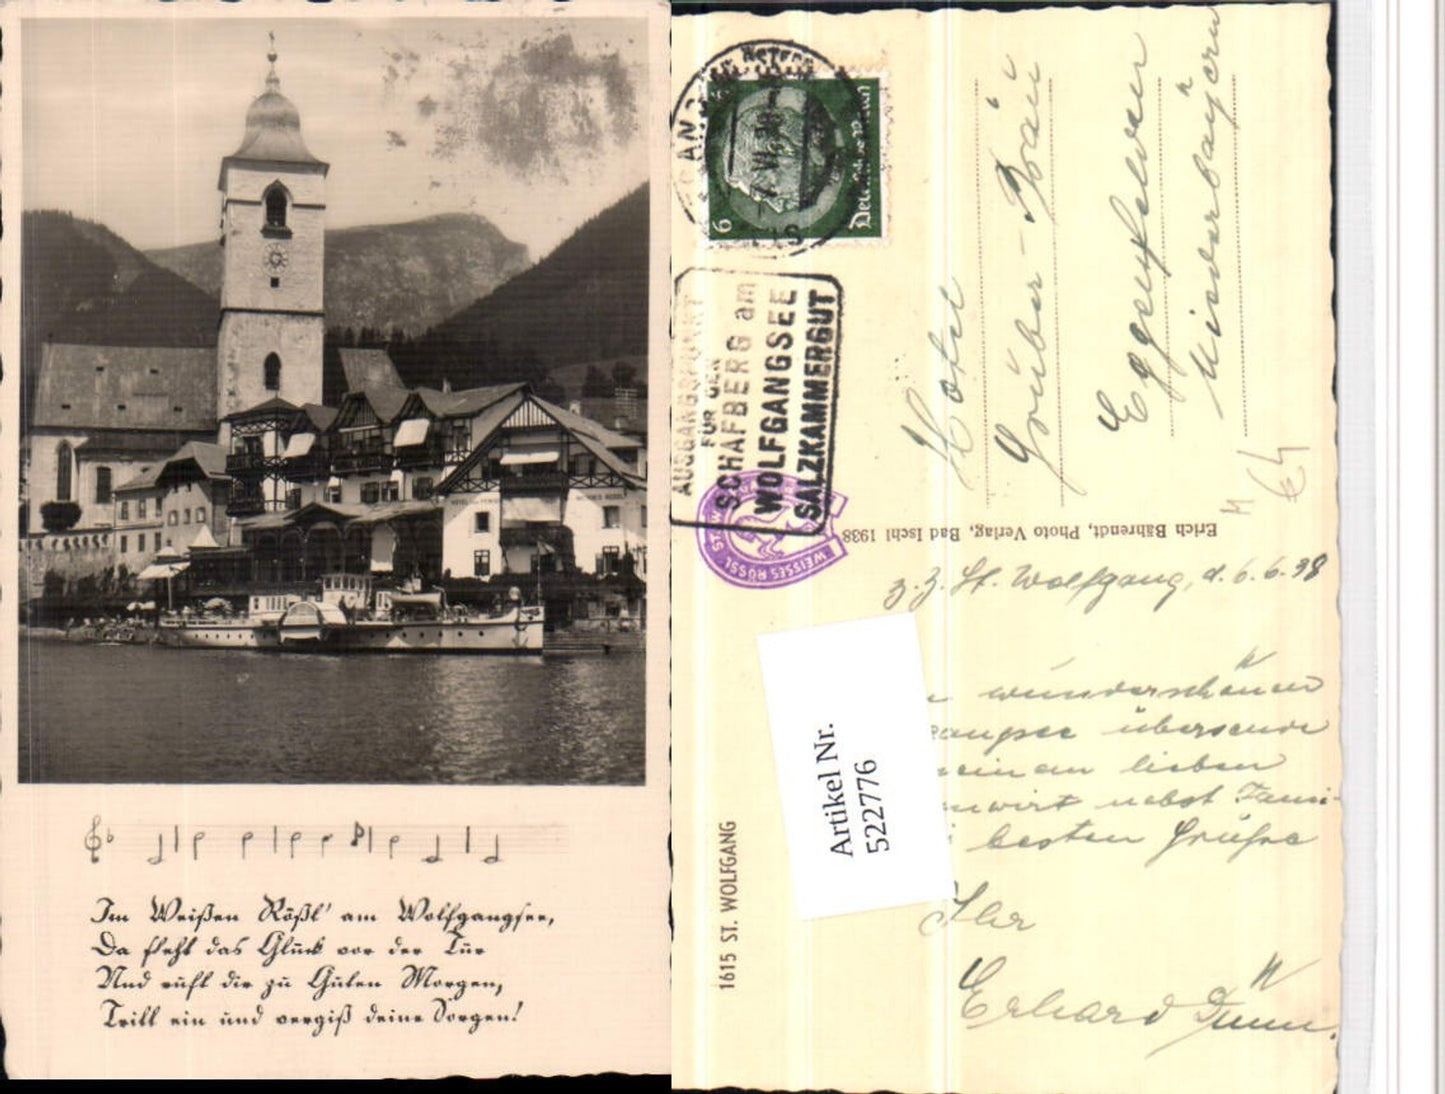 HOTEL
WEISSES RÖSSL
Im Weißen Rößl' am Wolfgangsee,
Da steht das Glück vor der Tür
Und ruft dir zu Guten Morgen,
Tritt ein und vergiß deine Sorgen!
6
7.VI.38
Deutsches Reich
AUSGANGSPUNKT
FÜR DEN
SCHAFBERG am
WOLFGANGSEE
SALZKAMMERGUT
WEISSES RÖSSL ST. W
Hotel
Gruber-Bräu
Eggenfelden
Niederbayern
Erich Bährendt, Photo Verlag, Bad Ischl 1938
z. Z. St. Wolfgang, d. 6.6.38
wunderschönen
übersende
lieben
wirt nebst Fami-
besten Grüße
Ihr
Erhard
Artikel Nr.
522776
1615 ST. WOLFGANG